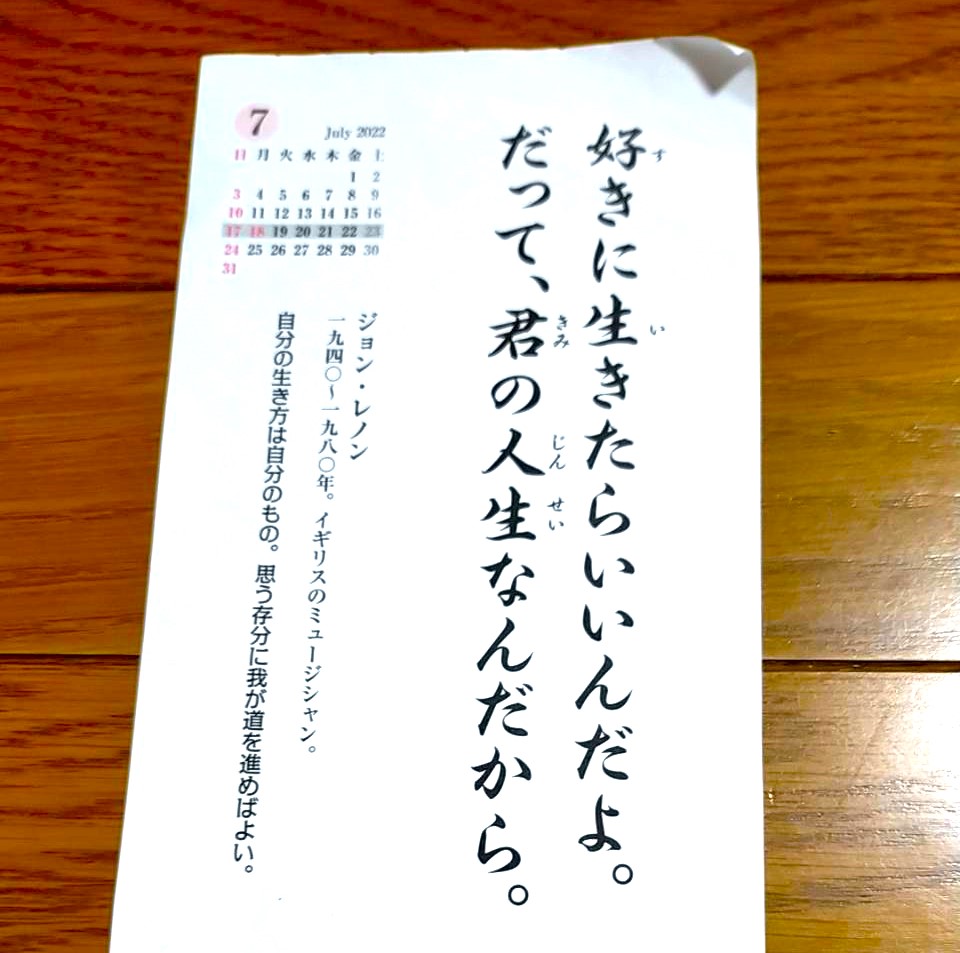 好きに生きたらいいんだよ。
だって、君の人生なんだから。
7
July 2022
日 月 火 水 木 金 土
1 2
3 4 5 6 7 8 9
10 11 12 13 14 15 16
17 18 19 20 21 22 23
24 25 26 27 28 29 30
31
ジョン・レノン
一九四〇〜一九八〇年。イギリスのミュージシャン。
自分の生き方は自分のもの。思う存分に我が道を進めばよい。